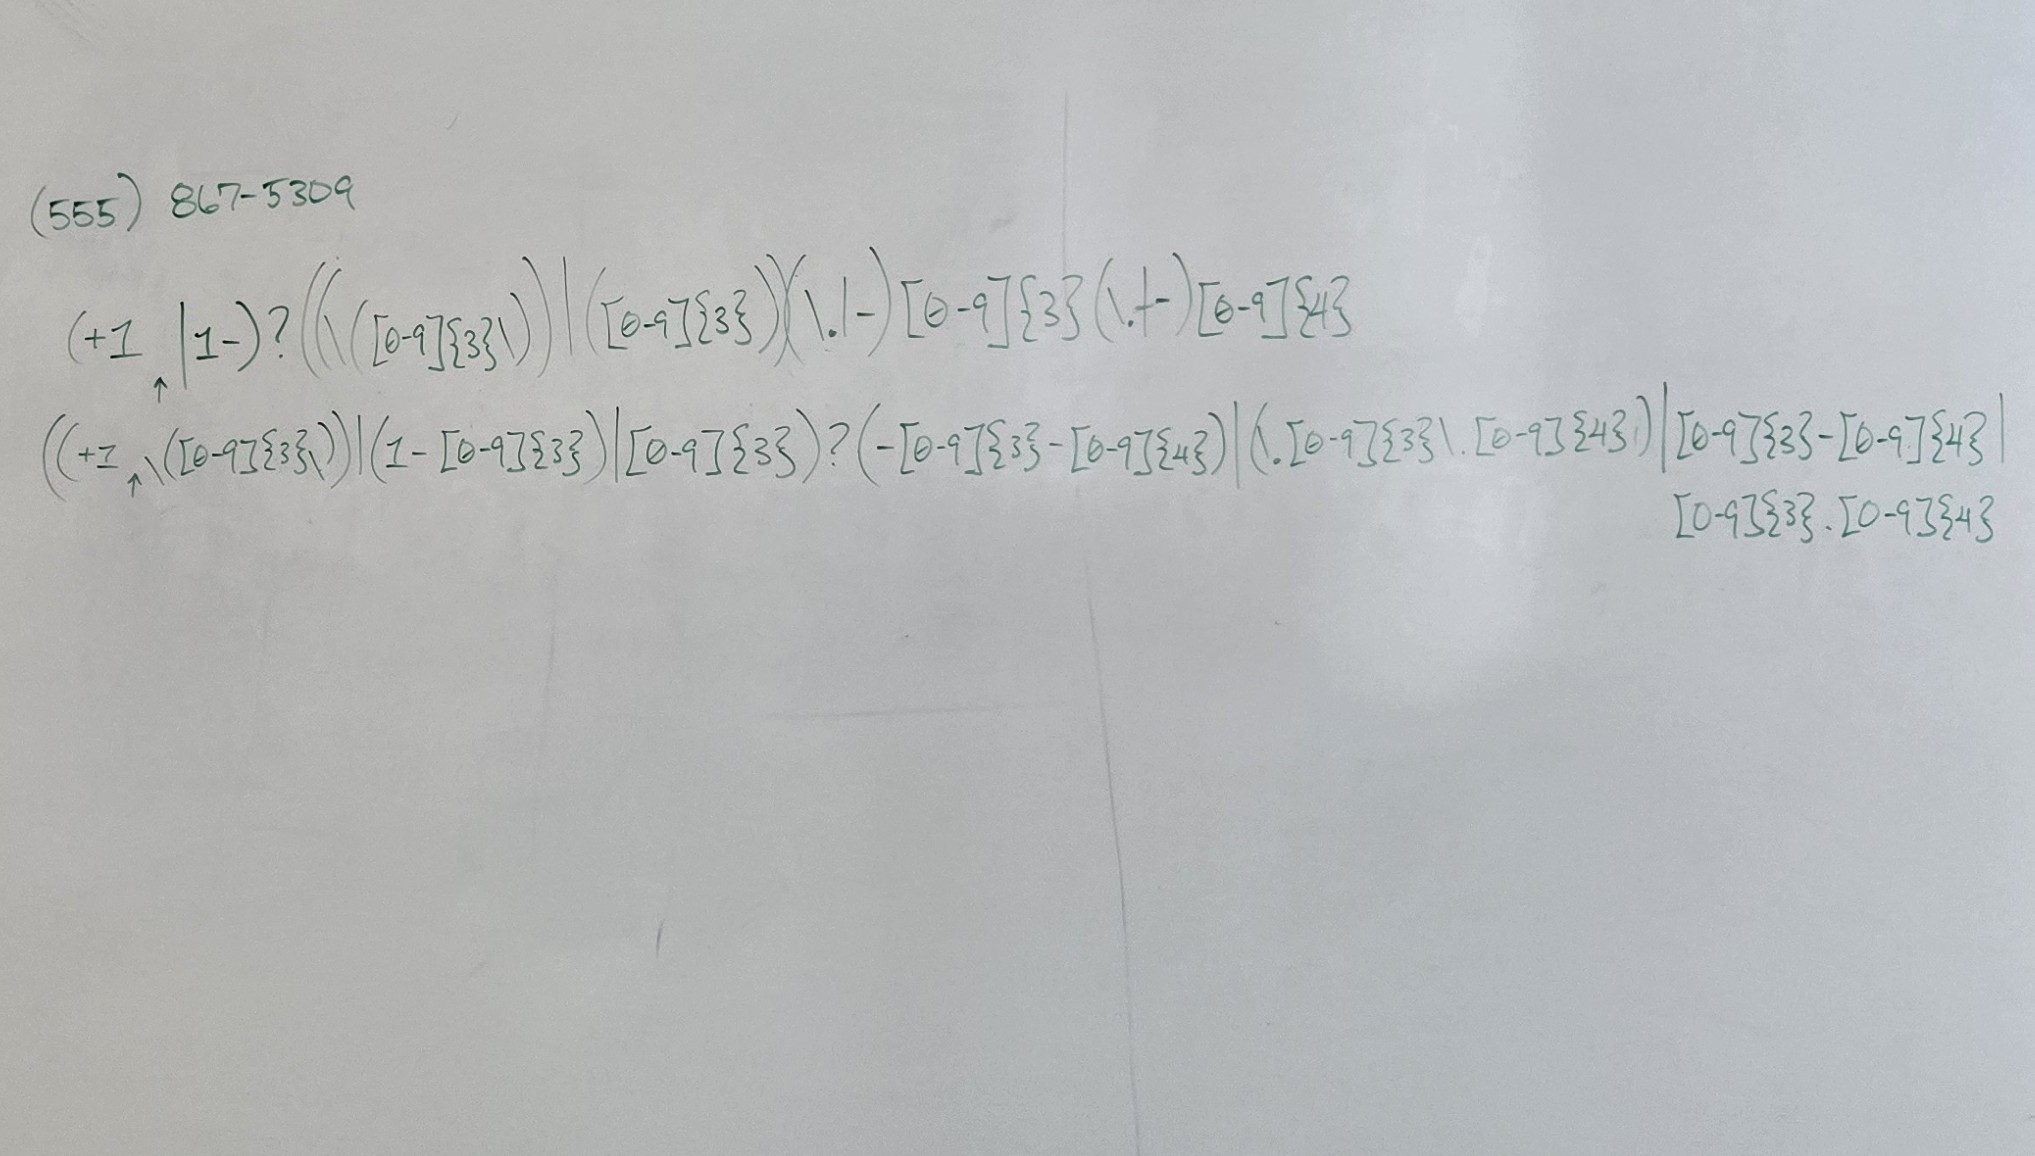 (555) 867-5309
(+1 |1-)?((\([0-9]{3}\))|([0-9]{3}))(\.|-)[0-9]{3}(\.|-)[0-9]{4}
↑
((+1 \([0-9]{3}\))|(1-[0-9]{3})|[0-9]{3})?(-[0-9]{3}-[0-9]{4})|(\.[0-9]{3}\.[0-9]{4})|[0-9]{3}-[0-9]{4}|
↑
[0-9]{3}.[0-9]{4}